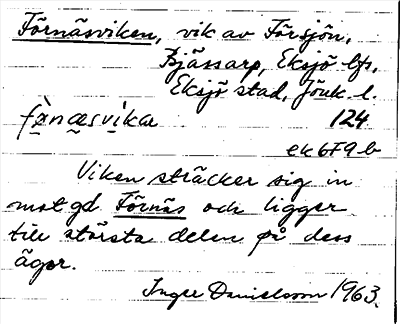 Förnäsviken, vik av Försjön,
Bjässarp, Eksjö lfs,
Eksjö stad, Jönk. l.
124
ek 679 b
Viken sträcker sig in
mot gd Förnäs och ligger
till största delen på dess
ägor.
Inger Danielsson 1963.